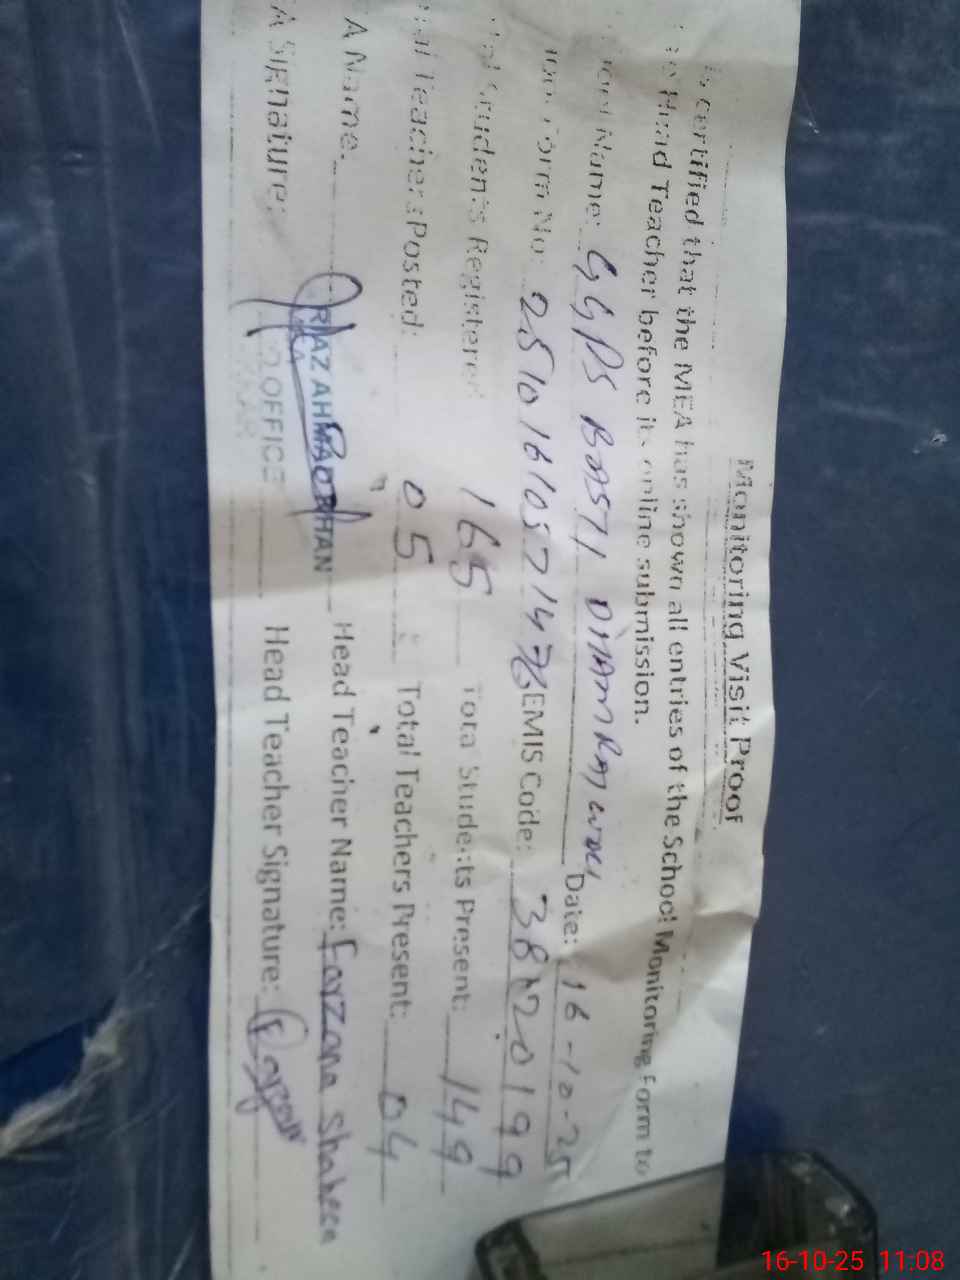 Monitoring Visit Proof
is certified that the MEA has shown all entries of the School Monitoring Form to
Head Teacher before its online submission.
Name: GGPS BASTI DHAMRAY WALI Date: 16-10-25
Form No: EMIS Code:
Students Registered 165 Total Students Present: 149
Teachers Posted: 05 Total Teachers Present: 04
A Name: RIAZ AHMAD KHAN Head Teacher Name: Farzana Shaheen
A Signature: OFFICE Head Teacher Signature:
16-10-25 11:08